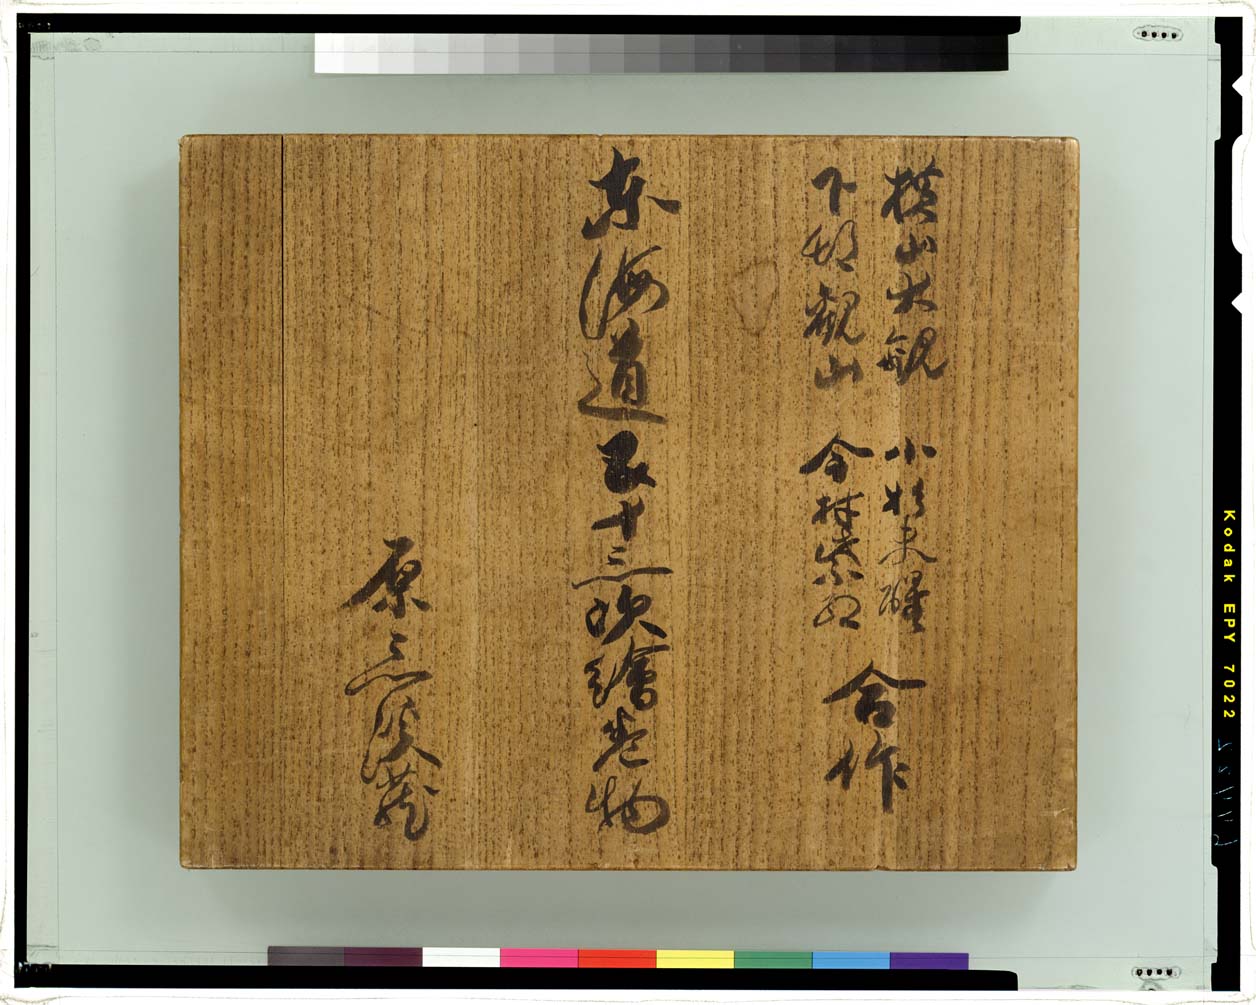 横山大観 小杉未醒
下邨観山 今村紫紅
合作
東海道五十三次繪巻物
原三溪蔵
Kodak EPY 7022